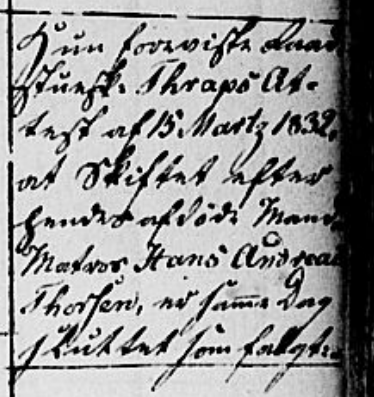 Hun foreviste Raad
stueskr. Thraps At-
test af 15 Martz 1832,
at Skiftet efter
hendes afdøde Mand
Matros Hans Andreas
Thorsen, er samme Dag
sluttet som følge